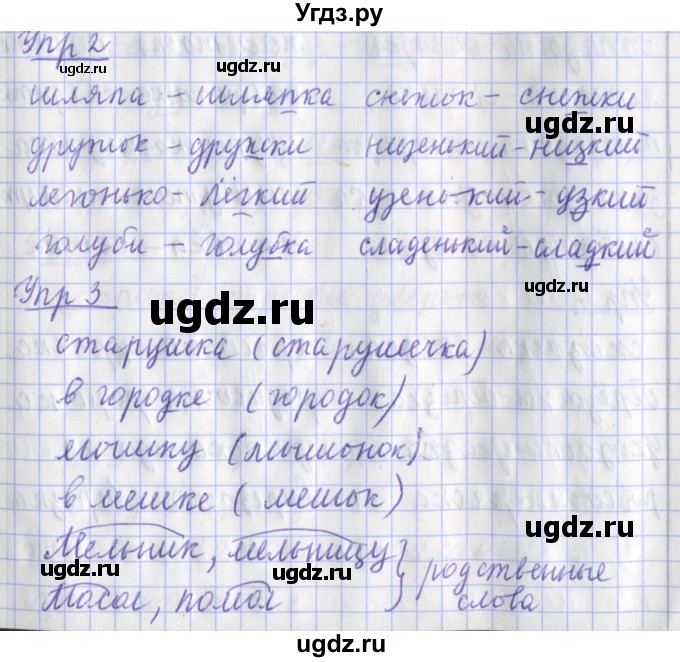 Угдз.ру
Упр 2
ugdz.ru ugdz.ru ugdz.ru
шляпа - шляпка снежок - снежки
ugdz.ru
дружок - дружски низенький - низкий
легонько - лёгкий узенький - узкий
голуби - голубка сладенький - сладкий
ugdz.ru ugdz.ru
Упр 3
ugdz.ru
старушка (старушечка)
в городке (городок)
мошку (мышонок)
ugdz.ru ugdz.ru
в мешке (мешок)
ugdz.ru
Мельник, мельницу
ugdz.ru ugdz.ru
родственные
Молол, помол
слова
ugdz.ru